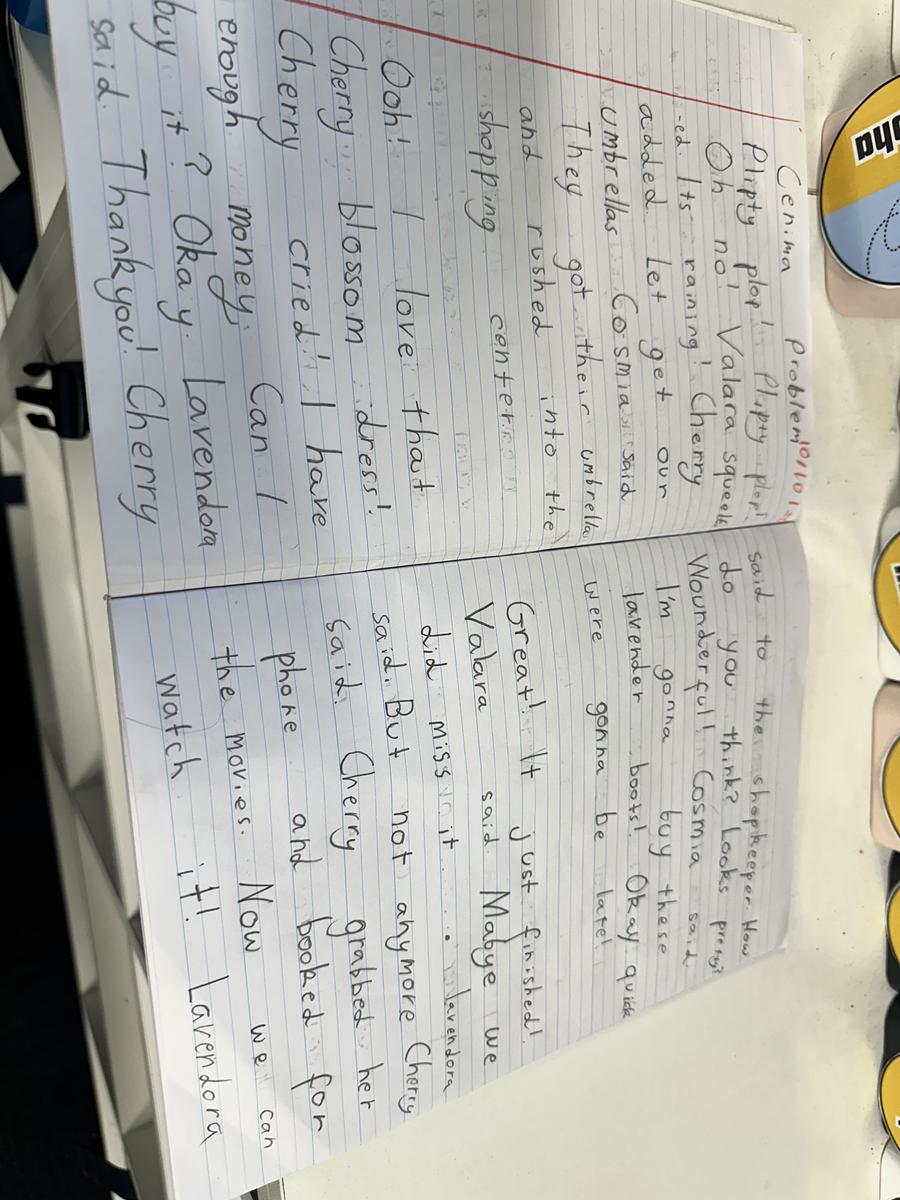 Cenima Problem
10/10/2
Plipty plop! Plipty plop!
Oh no! Valara squeek
-ed. Its raining! Cherry
added. Let get our
umbrellas. Cosmia said
They got their umbrella
and rushed into the
shopping center.
Ooh! I love that
Cherry blossom dress!
Cherry cried! I have
enough money. Can I
buy it? Okay. Lavendora
said. Thankyou! Cherry
said to the shopkeeper. How
do you think? Looks pretty?
Wounderful! Cosmia said.
I'm gonna buy these
lavender boots! Okay quick
were gonna be late!
Great! It just finished!
Valara said Mabye we
did miss it.... lavendora
said. But not anymore Cherry
said. Cherry grabbed her
phone and booked for
the movies. Now we can
watch it! Lavendora